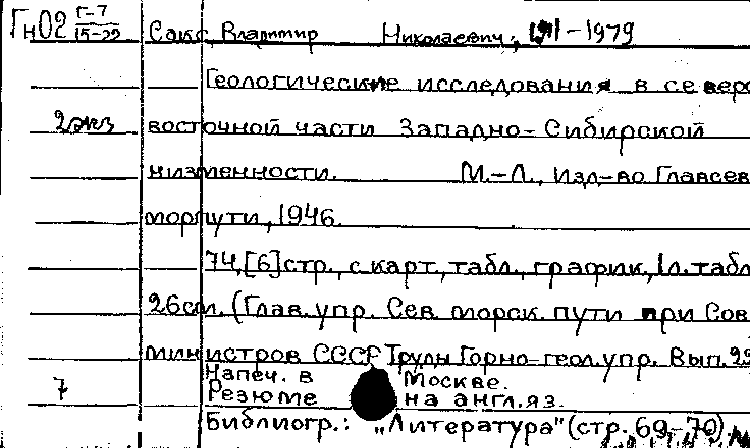 Гн02 Г-7
15-22 Сакс, Владимир Николаевич, 1911-1979
Геологические исследования в северо
2экз восточной части Западно-Сибирской
низменности. М.-Л., Изд-во Главсев
морпути, 1946.
74,[6]стр., с карт, табл., график, 1л. табл
26см. (Глав. упр. Сев. морск. пути при Сов
министров СССР Труды Горно-геол. упр. Вып. 22
Напеч. в Москве.
7 Резюме на англ. яз.
Библиогр.: "Литература" (стр. 69-70)